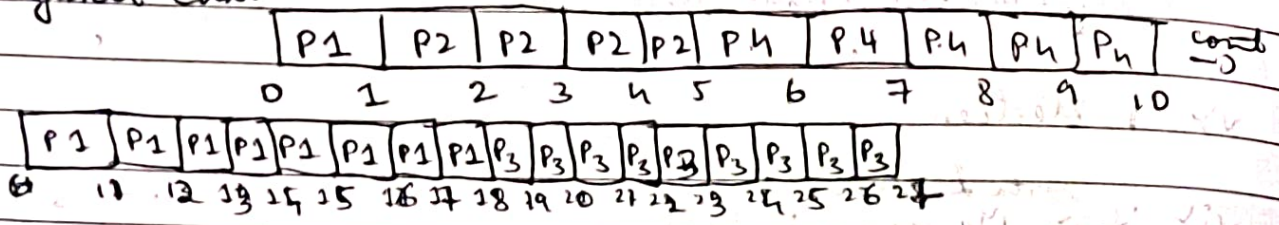 P1 P2 P2 P2 P2 P4 P.4 P.4 P4 P4 cont
0 1 2 3 4 5 6 7 8 9 10
P1 P1 P1 P1 P1 P1 P1 P1 P3 P3 P3 P3 P3 P3 P3 P3 P3
11 12 13 14 15 16 17 18 19 20 21 22 23 24 25 26 27